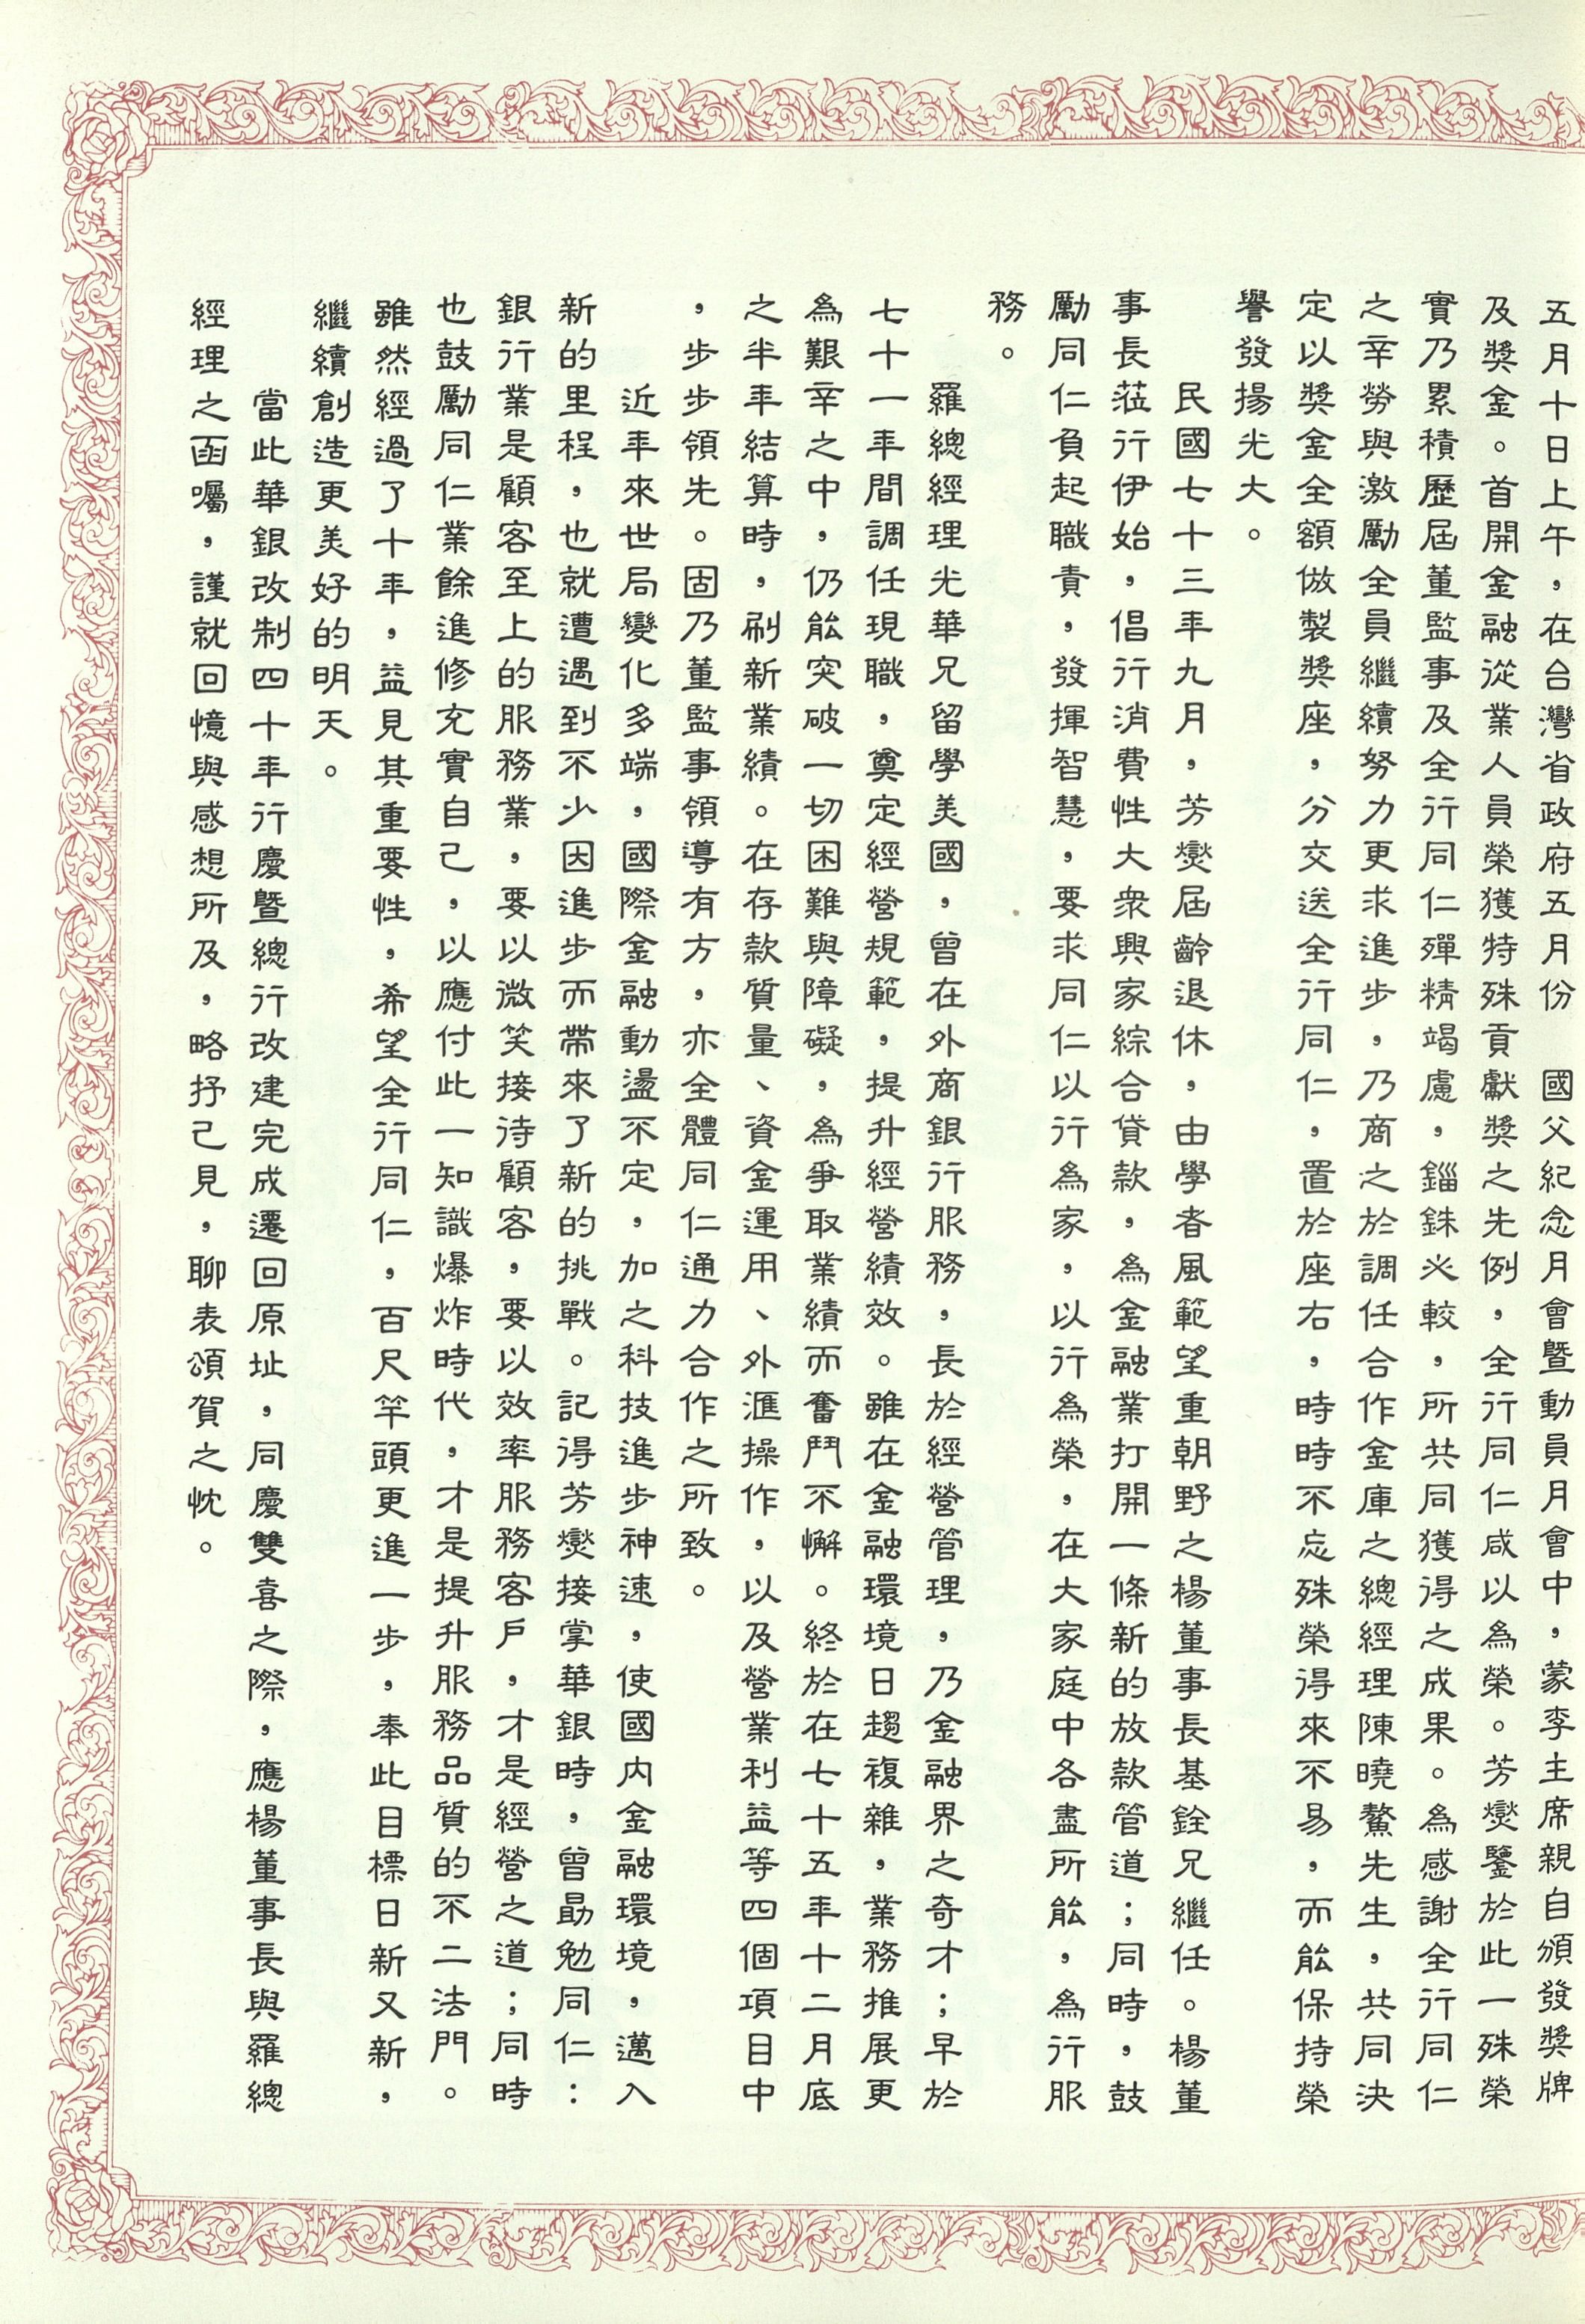 五月十日上午，在台灣省政府五月份　國父紀念月會暨動員月會中，蒙李主席親自頒發獎牌
及獎金。首開金融從業人員榮獲特殊貢獻獎之先例，全行同仁咸以為榮。芳燮鑒於此一殊榮
實乃累積歷屆董監事及全行同仁殫精竭慮，錙銖必較，所共同獲得之成果。為感謝全行同仁
之辛勞與激勵全員繼續努力更求進步，乃商之於調任合作金庫之總經理陳曉鰲先生，共同決
定以獎金全額倣製獎座，分交送全行同仁，置於座右，時時不忘殊榮得來不易，而能保持榮
譽發揚光大。
民國七十三年九月，芳燮屆齡退休，由學者風範望重朝野之楊董事長基銓兄繼任。楊董
事長蒞行伊始，倡行消費性大衆興家綜合貸款，為金融業打開一條新的放款管道；同時，鼓
勵同仁負起職責，發揮智慧，要求同仁以行為家，以行為榮，在大家庭中各盡所能，為行服
務。
羅總經理光華兄留學美國，曾在外商銀行服務，長於經營管理，乃金融界之奇才；早於
七十一年間調任現職，奠定經營規範，提升經營績效。雖在金融環境日趨複雜，業務推展更
為艱辛之中，仍能突破一切困難與障礙，為爭取業績而奮鬥不懈。終於在七十五年十二月底
之半年結算時，刷新業績。在存款質量、資金運用、外滙操作，以及營業利益等四個項目中
，步步領先。固乃董監事領導有方，亦全體同仁通力合作之所致。
近年來世局變化多端，國際金融動盪不定，加之科技進步神速，使國內金融環境，邁入
新的里程，也就遭遇到不少因進步而帶來了新的挑戰。記得芳燮接掌華銀時，曾勗勉同仁：
銀行業是顧客至上的服務業，要以微笑接待顧客，要以效率服務客戶，才是經營之道；同時
也鼓勵同仁業餘進修充實自己，以應付此一知識爆炸時代，才是提升服務品質的不二法門。
雖然經過了十年，益見其重要性，希望全行同仁，百尺竿頭更進一步，奉此目標日新又新，
繼續創造更美好的明天。
當此華銀改制四十年行慶暨總行改建完成遷回原址，同慶雙喜之際，應楊董事長與羅總
經理之函囑，謹就回憶與感想所及，略抒己見，聊表頌賀之忱。